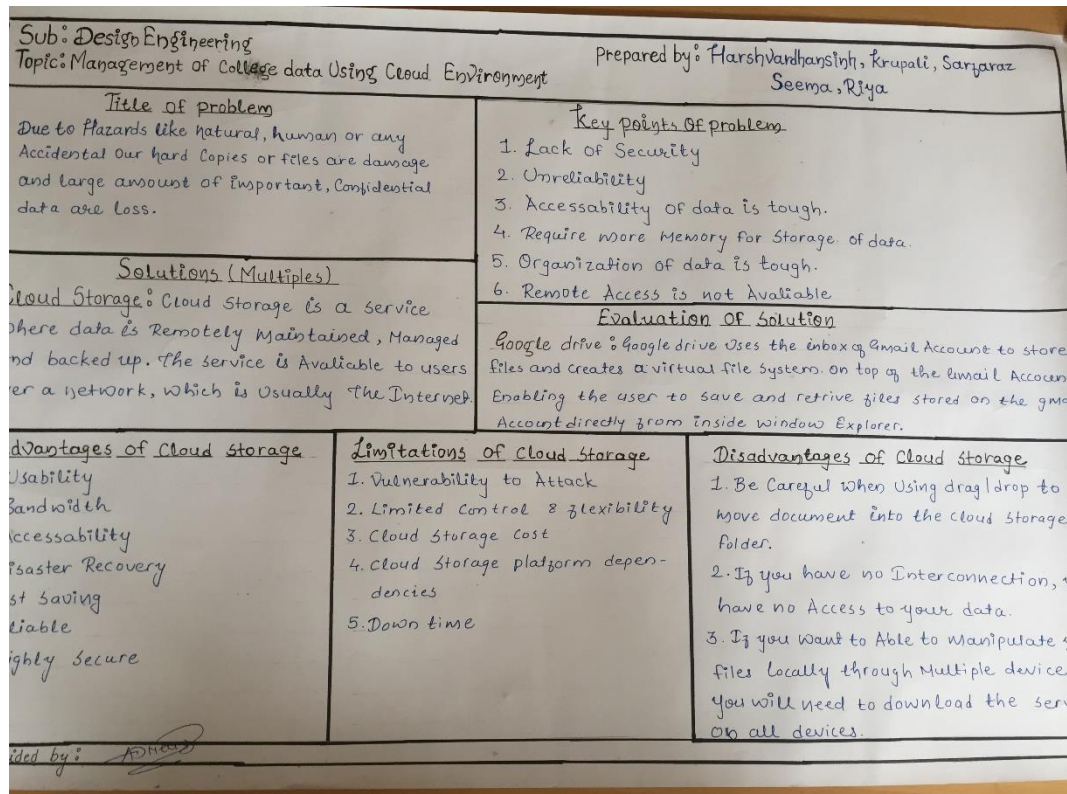 Sub: Design Engineering
Topic: Management of College data Using Cloud Environment
Prepared by: Harshvardhansinh, Krupali, Sarfaraz
Seema, Riya
Title of problem
Due to Hazards like natural, human or any
Accidental Our hard Copies or files are damage
and large amount of important, Confidential
data are loss.
Key points Of problem
1. Lack of Security
2. Unreliability
3. Accessability of data is tough.
4. Require more Memory for Storage of data.
5. Organization of data is tough.
6. Remote Access is not Avaliable
Solutions (Multiples)
Cloud Storage: Cloud Storage is a service
where data is Remotely Maintained, Managed
nd backed up. The service is Avaliable to users
er a network, which is Usually The Internet.
Evaluation Of Solution
Google drive: Google drive Uses the inbox of Gmail Account to store
files and creates a virtual file System. on top of the Gmail Accoun
Enabling the user to save and retrive files stored on the gma
Account directly from inside window Explorer.
dvantages of Cloud Storage
Usability
Bandwidth
ccessability
isaster Recovery
st Saving
liable
ighly Secure
Limitations of Cloud Storage
1. Vulnerability to Attack
2. Limited Control & flexibility
3. Cloud Storage Cost
4. Cloud Storage platform depen-
dencies
5. Down time
Disadvantages of Cloud Storage
1. Be Careful when Using drag/drop to
move document into the cloud storage
folder.
2. If you have no Interconnection,
have no Access to your data.
3. If you want to Able to Manipulate
files Locally through Multiple device
You will need to download the ser
on all devices.
ided by: